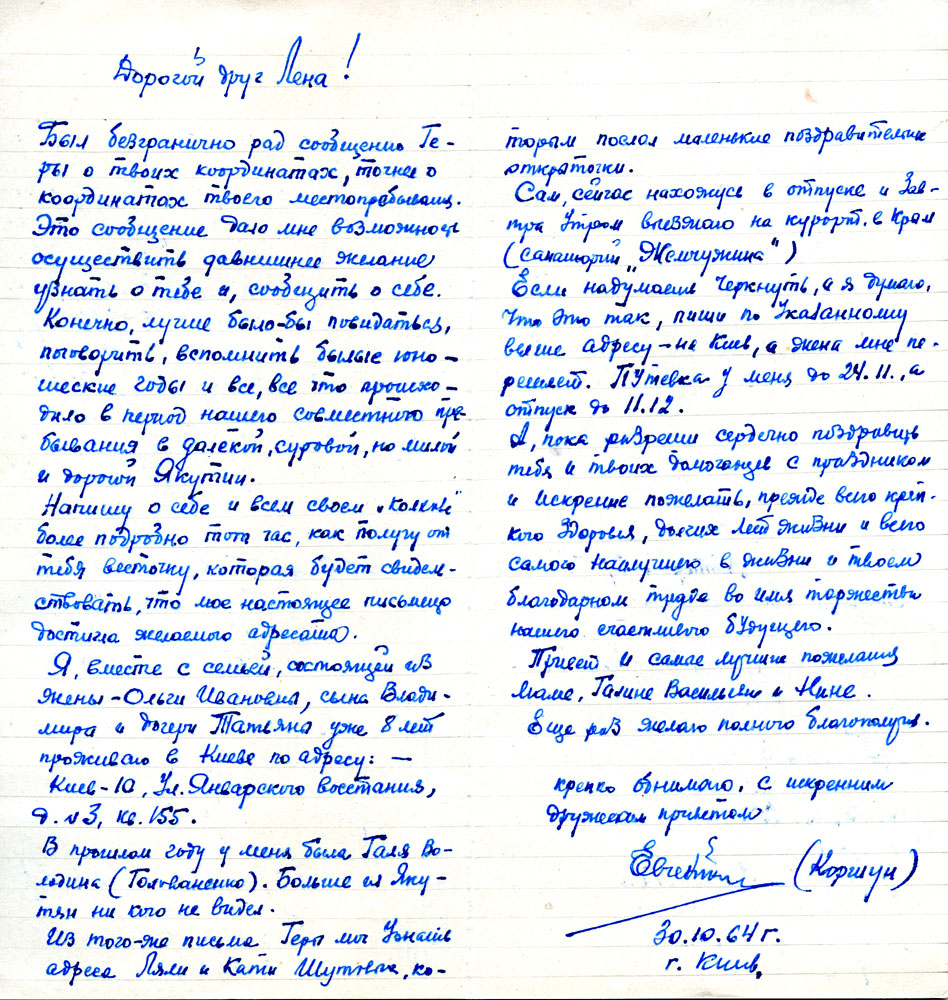 Дорогой друг Лена!
Был безгранично рад сообщению Ге-
ры о твоих координатах, точнее о
координатах твоего местопребывания.
Это сообщение дало мне возможность
осуществить давнишнее желание
узнать о тебе и, сообщить о себе.
Конечно, лучше было-бы повидаться,
поговорить, вспомнить былые юно-
шеские годы и все, все что происхо-
дило в период нашего совместного пре-
бывания в далёкой, суровой, но милой
и дорогой Якутии.
Напишу о себе и всем своем
более подробно тот час, как получу от
тебя весточку, которая будет свидель-
ствовать, что мое настоящее письмецо
достигла желаемого адресата.
Я, вместе с семьей, состоящей из
жены - Ольги Ивановны, сына Влади-
мира и дочери Татьяна уже 8 лет
проживаю в Киеве по адресу: —
Киев-10, Ул. Январского восстания,
д. №3, кв. 155.
В прошлом году у меня была Галя Во-
лодина (Голованенко). Больше из Яку-
тян ни кого не видел.
Из того-же письма Геры мы узнали
адреса Ляли и Кати Шутовых, ко-
торым послал маленькие поздравительные
открыточки.
Сам, сейчас нахожусь в отпуске и зав-
тра Утром выезжаю на курорт. в Крым
(санаторий „Жемчужина")
Если надумаешь черкнуть, а я думаю,
что это так, пиши по Указанному
выше адресу - на Киев, а жена мне пе-
решлет. Путевка у меня до 24.11., а
отпуск до 11.12.
А, пока разреши сердечно поздравить
тебя и твоих домочадцев с праздником
и искренне пожелать, прежде всего креп-
кого здоровья, долгих лет жизни и всего
самого наилучшего в жизни и твоем
благодарном труде во имя торжества
нашего счастливого будущего.
Привет и самые лучшие пожелания
Маме, Галине Васильевне и Нине.
Еще раз желаю полного благополучия.
крепко обнимаю, с искренним
дружеским приветом
Евгений (Коршун)
30.10.64 г.
г. Киев.